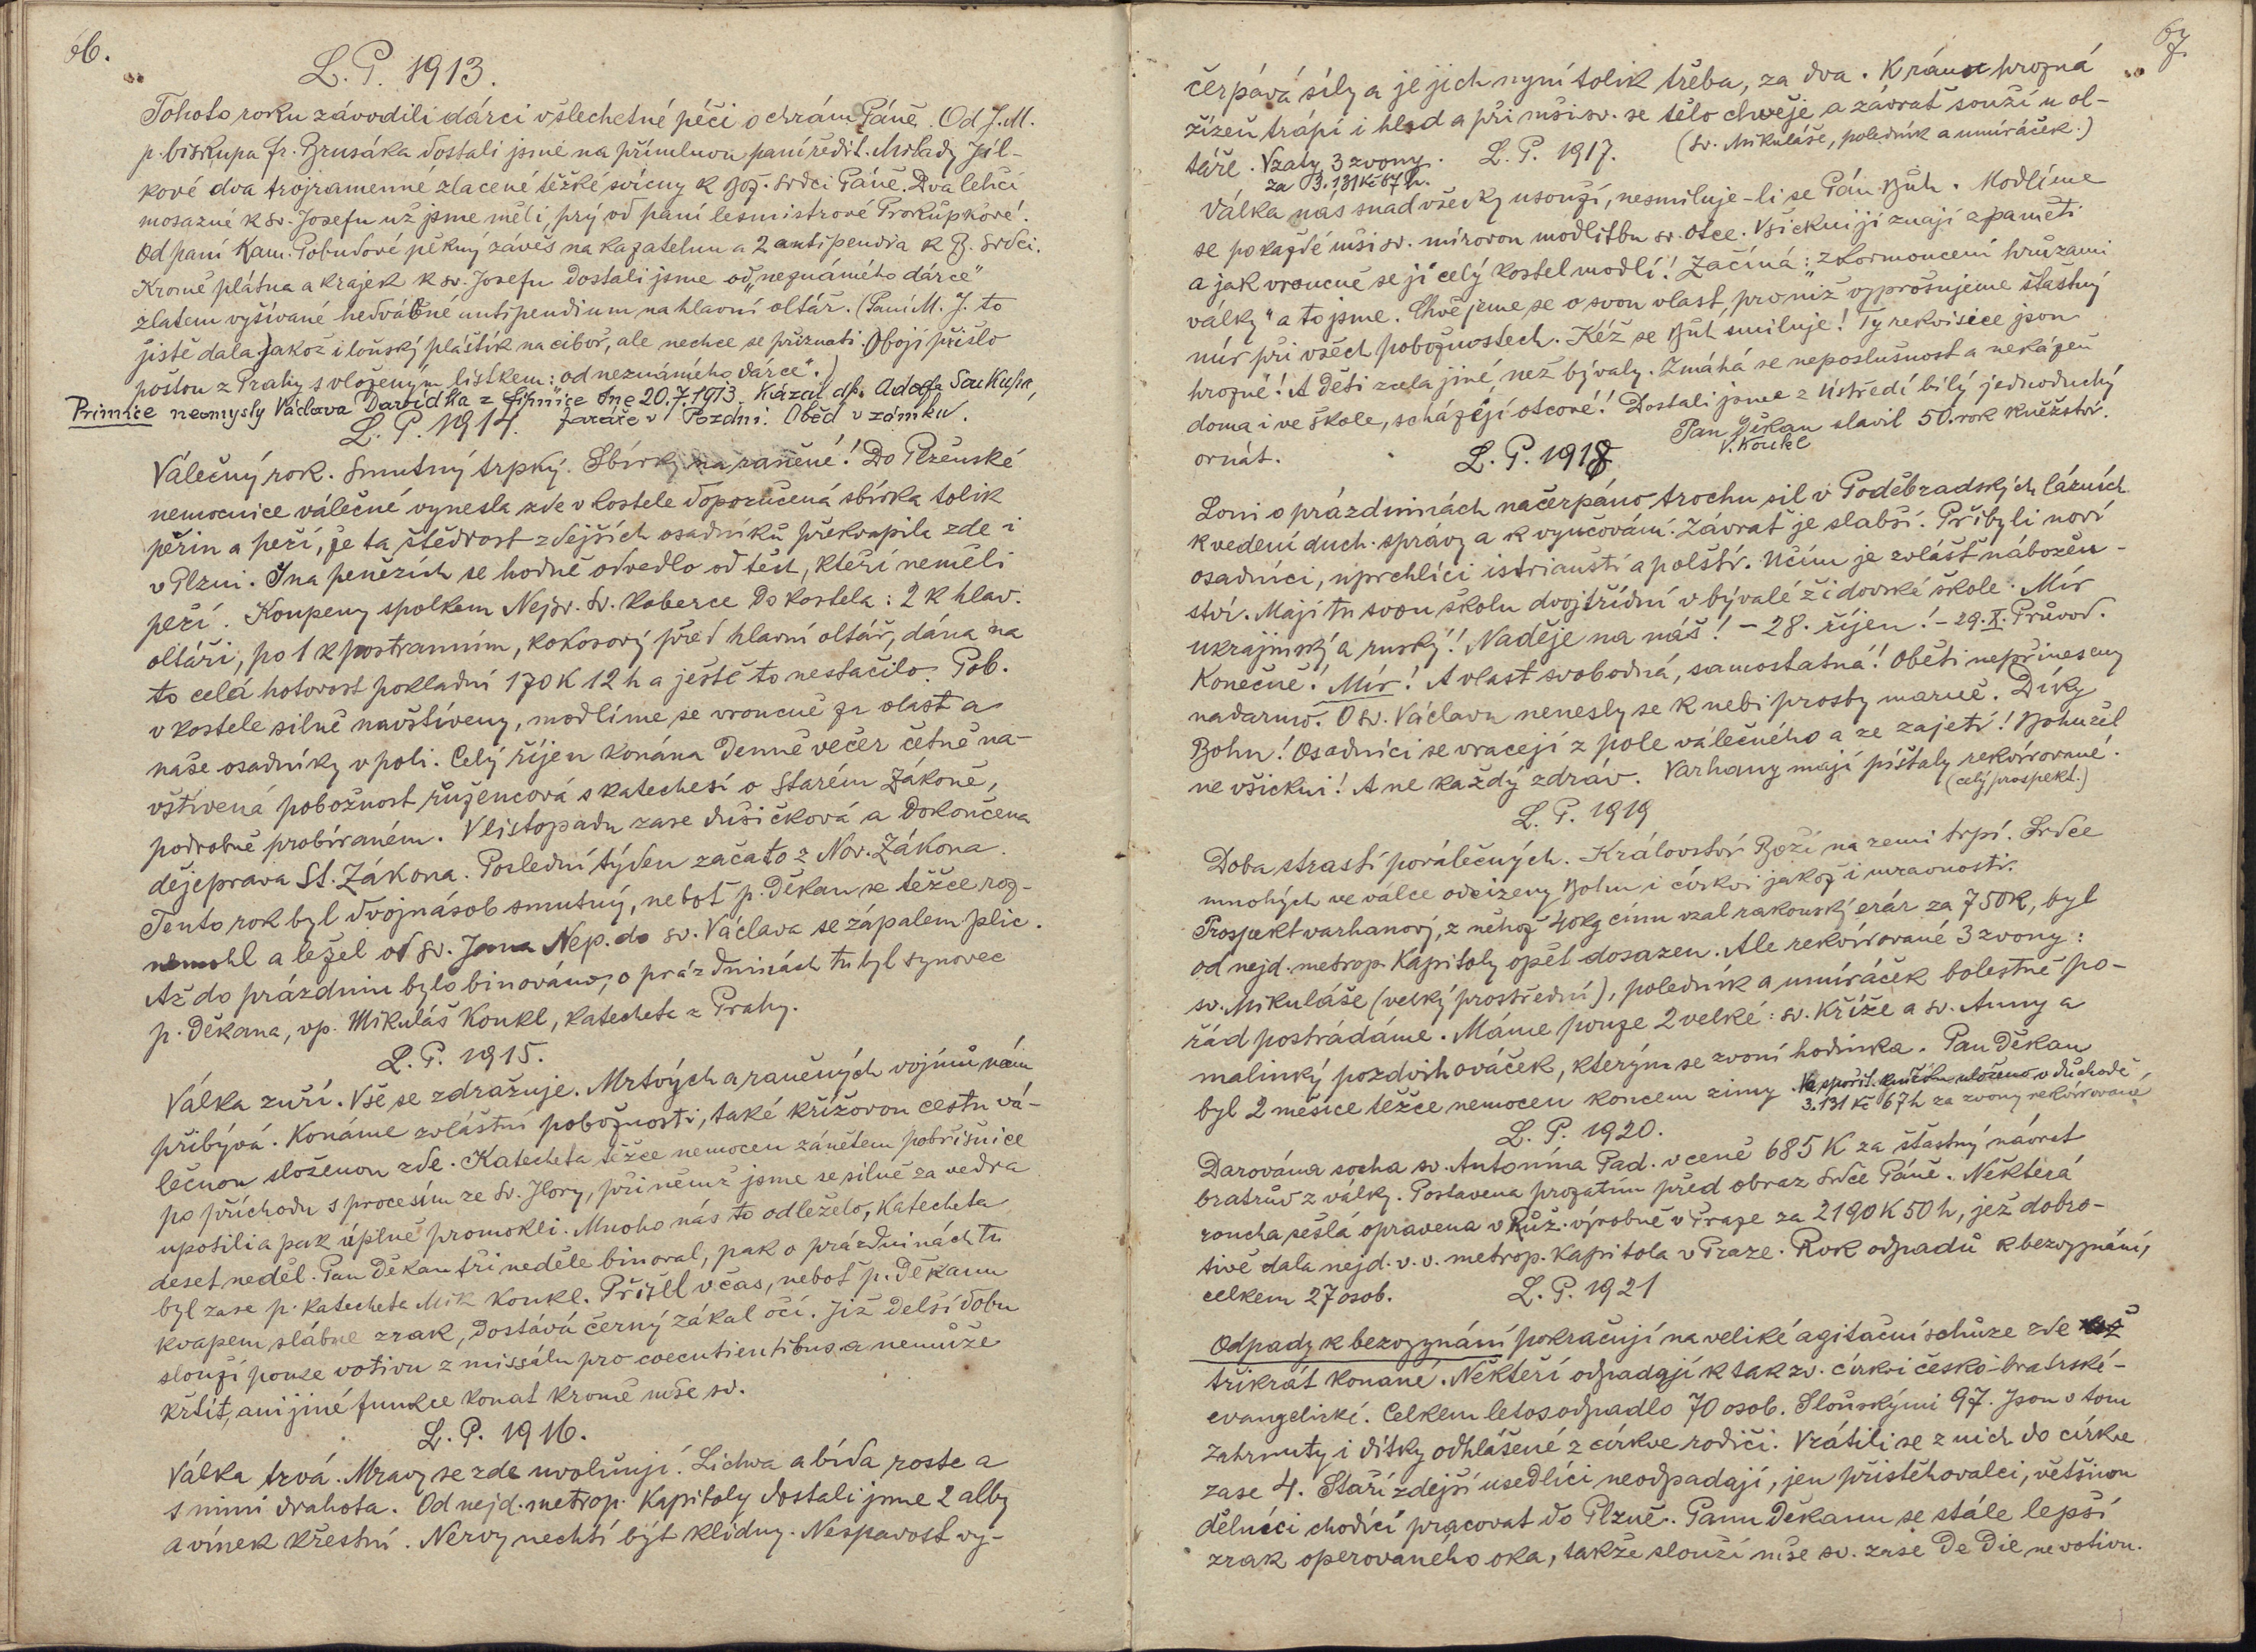 66.
L. P. 1913.
Tohoto roku závodili dárci v šlechetné péči o chrám Páně. Od J. M.
p. biskupa Fr. Brusáka dostali jsme na přímluvu paní ředit. Milady Jíl-
kové dva trojramenné zlacené těžké svícny k Bož. Srdci Páně. Dva lehčí
mosazné k sv. Josefu už jsme měli, prý od paní lesmistrové Prokůpkové.
Od paní Kam. Pobudové pěkný závěs na kazatelnu a 2 antipendia k B. Srdci.
Kromě plátna a krajek k sv. Josefu dostali jsme od „neznámého dárce"
zlatem vyšívané hedvábné antipendium na hlavní oltář. (Paní M. J. to
jistě dala jakož i loňský pláštík na ciboř, ale nechce se přiznati. Obojí přišlo
poštou z Prahy s vloženým lístkem: od neznámého dárce".)
Primice neomysly Václava Davídka z dne 20.7.1913. Kázal dp. Adolf Soukup,
farář v Pozdni. Oběd v zámku.
L. P. 1914.
Válečný rok. Smutný trpký. Sbírky na raněné! Do Plzeňské
nemocnice válečné vynesla zde v kostele doporučená sbírka tolik
peřin a peří, že ta štědrost zdejších osadníků překvapila zde i
v Plzni. I na penězích se hodně odvedlo od těch, kteří neměli
peří. Koupeny spolkem Nejsv. Sv. koberce do kostela: 2 k hlav.
oltáři, po 1 k postranním, kokosový před hlavní oltář, dána na
to celá hotovost pokladní 170 K 12 h a ještě to nestačilo. Pob.
v kostele silně navštíveny, modlíme se vroucně za vlast a
naše osadníky v poli. Celý říjen konána denně večer četně na-
vštívená pobožnost růžencová s katechesí o Starém Zákoně,
podrobně probíraném. V listopadu zase dušičková a dokončena
dějeprava St. Zákona. Poslední týden začato z Nov. Zákona.
Tento rok byl dvojnásob smutný, neboť p. Děkan se těžce roz-
nemohl a ležel od sv. Jana Nep. do sv. Václava se zápalem plic.
Až do prázdnin bylo binováno, o prázdninách tu byl synovec
p. Děkana, vp. Mikuláš Koukl, katecheta z Prahy.
L. P. 1915.
Válka zuří. Vše se zdražuje. Mrtvých a raněných vojínů nám
přibývá. Konáme zvláštní pobožnosti, také křížovou cestu vá-
lečnou složenou zde. Katecheta těžce nemocen zánětem pobřišnice
po příchodu s procesím ze Sv. Hory, při němž jsme se silně za vedra
upotili a pak úplně promokli. Mnoho nás to odleželo, katecheta
deset neděl. Pan Děkan tři neděle binoval, pak o prázdninách tu
byl zase p. katecheta Mik Koukl. Přišel včas, neboť p. Děkanu
kvapem slábne zrak, dostává černý zákal očí. Již delší dobu
slouží pouze votivu z missálu pro coecutientibus a nemůže
křtít, ani jiné funkce konat kromě mše sv.
L. P. 1916.
Válka trvá. Mravy se zde uvolňují. Lichva a bída roste a
s nimi drahota. Od nejd. metrop. Kapitoly dostali jsme 2 alby
a vínek křestní. Nervy nechtí být klidny. Nespavost vy-
67
čerpává síly a je jich nyní tolik třeba, za dva. K ránu hrozná
žízeň trápí i hlad a při mši sv. se tělo chvěje a závrať souží u ol-
táře. Vzaty 3 zvony. L. P. 1917. (sv. Mikuláše, poledník a umíráček.)
za 3.131 Kč 67 h.
Válka nás snad všecky usouží, nesmiluje-li se Pán Bůh. Modlíme
se po každé mši sv. mírovou modlitbu sv. Otce. Všickni ji znají z paměti
a jak vroucně se jí celý kostel modlí! Začíná: „zkormoucení hrůzami
války" a to jsme. Chvějeme se o svou vlast, pro niž vyprošujeme šťastný
mír při všech pobožnostech. Kéž se Bůh smiluje! Ty rekvisice jsou
hrozné! A děti zcela jiné, než bývaly. Zmáhá se neposlušnost a nekázeň
doma i ve škole, scházejí otcové! Dostali jsme z Ústředí bílý jednoduchý
ornát. L. P. 1918 Pan Děkan slavil 50. rok kněžství.
V. Koukl
Loni o prázdninách načerpáno trochu sil v Poděbradských lázních
k vedení duch. správy a k vyučování. Závrať je slabší. Přibyli noví
osadníci, uprchlíci istrianští a polští. Učím je zvlášť nábožen-
ství. Mají tu svou školu dvojtřídní v bývalé židovské škole. Mír
ukrajinský a ruský! Naděje na náš! - 28. říjen! - 29.X. Průvod.
Konečně! Mír! A vlast svobodná, samostatná! Oběti nepřineseny
nadarmo. O sv. Václavu nenesly se k nebi prosby marně. Díky
Bohu! Osadníci se vracejí z pole válečného a ze zajetí! Bohužel
ne všickni! A ne každý zdráv. Varhany mají píšťaly rekvírované.
(celý prospekt.)
L. P. 1919
Doba strastí poválečných. Království Boží na zemi trpí. Srdce
mnohých ve válce odcizeny Bohu i církvi jakož i mravnosti.
Prospekt varhanový, z něhož 40 kg cínu vzal rakouský erár za 750 K, byl
od nejd. metrop. Kapitoly opět dosazen. Ale rekvírované 3 zvony:
sv. Mikuláše (velký prostřední), poledník a umíráček bolestně po-
řád postrádáme. Máme pouze 2 velké: sv. Kříže a sv. Anny a
malinký pozdvihováček, kterým se zvoní hodinka. Pan Děkan
byl 2 měsíce těžce nemocen koncem zimy. Na spořit. knížku uloženo v důchodě
3.131 Kč 67 h za zvony rekvírované.
L. P. 1920.
Darována socha sv. Antonína Pad. v ceně 685 K za šťastný návrat
bratrův z války. Postavena prozatím před obraz Srdce Páně. Některá
roucha sešlá opravena v Růž. výrobně v Praze za 2190 K 50 h, jež dobro-
tivě dala nejd. v. v. metrop. Kapitola v Praze. Rok odpadů k bezvyznání,
celkem 27 osob. L. P. 1921
Odpady k bezvyznání pokračují na veliké agitační schůze zde
třikrát konané. Někteří odpadají k tak zv. církvi česko-bratrské-
evangelické. Celkem letos odpadlo 70 osob. S loňskými 97. Jsou v tom
zahrnuty i dítky odhlášené z církve rodiči. Vrátili se z nich do církve
zase 4. Staří zdejší usedlíci neodpadají, jen přistěhovalci, většinou
dělníci chodící pracovat do Plzně. Panu Děkanu se stále lepší
zrak operovaného oka, takže slouží mše sv. zase De Die ne votivu.